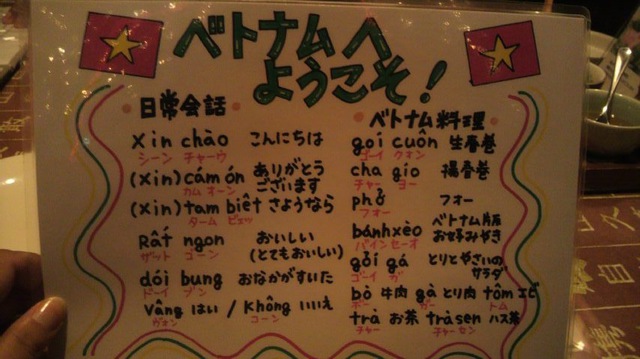 ベトナムへ
ようこそ!
日常会話
Xin chào こんにちは
シーン チャーウ
(xin) cám ón ありがとうございます
カム オーン
(xin) tam biêt さようなら
ターム ビエッ
Rất ngon おいしい(とてもおいしい)
ザット ゴーン
dói bung おなかがすいた
ドーイ ブン
Vâng はい / Không いいえ
ヴァン コーン
ベトナム料理
goi cuôn 生春巻
ゴーイ クオン
cha gio 揚春巻
チャー ヨー
phở フォー
フォー
bánhxèo ベトナム版お好みやき
バインセーオ
gỏi gá とりとやさいのサラダ
ゴーイ ガ
bò 牛肉 gà とり肉 tôm エビ
ボー ガー トム
trà お茶 tràsen ハス茶
チャー チャーセン